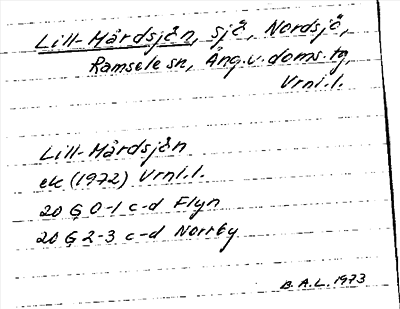 Lill-Mårdsjön, sjö, Nordsjö,
Ramsele sn, Ång.v.doms.tg,
Vrnl.l.
Lill-Mårdsjön
ek (1972) Vrnl.l.
20 G 0-1 c-d Flyn
20 G 2-3 c-d Norrby
B.A.L. 1973